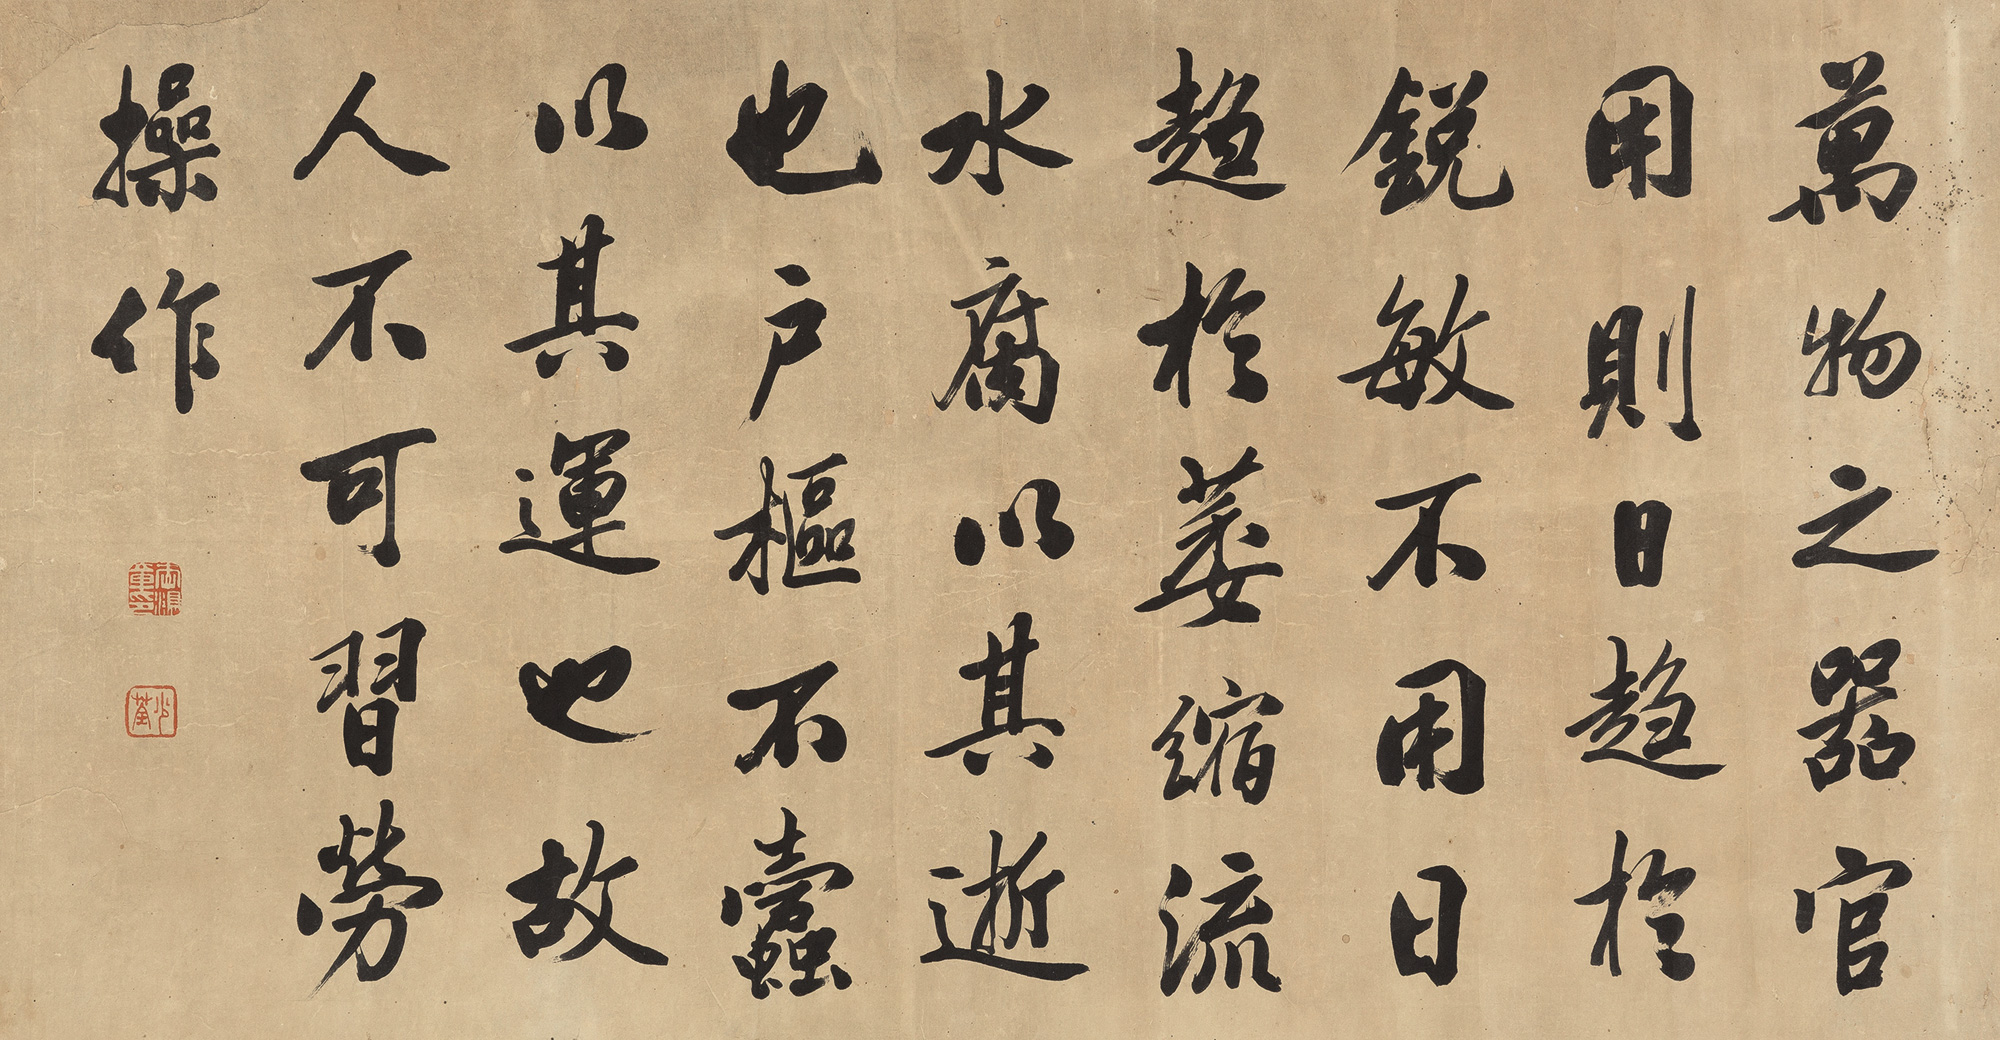 萬物之器官
用則日趋於
鋭敏不用日
趋於萎縮流
水腐以其逝
也户樞不蠹
以其運也故
人不可習勞
操作
少荃